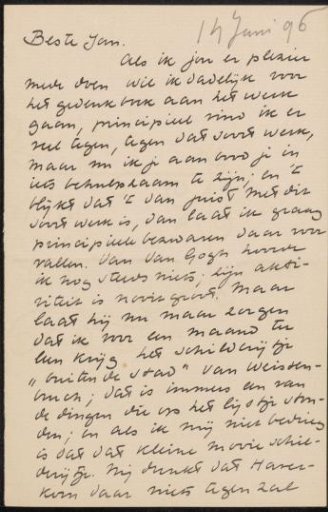 14 Juni 96
Beste Jan.
Als ik jou er plezier
mede doen wil ik dadelijk voor
het gedenkboek aan het werk
gaan, principieel vind ik er
veel tegen, tegen dat soort werk,
maar nu ik je aanbood je in
iets behulpzaam te zijn, en 't
blijkt dat 't dan juist met dit
soort werk is, dan laat ik graag
principieele bezwaren daar voor
vallen. Van Van Gogh hoorde
ik nog steeds niets; zijn akti-
viteit is nooit groot. Maar
laat hij nu maar zorgen
dat ik voor een maand te
leen krijg het schilderijtje
"buiten de stad" van Weissen-
bruch; dat is immers een van
de dingen die op het lijstje ston-
den; en als ik mij niet bedrieg
is dat dat kleine mooie schil-
derijtje. Mij dunkt dat Haver-
korn daar niets tegen zal